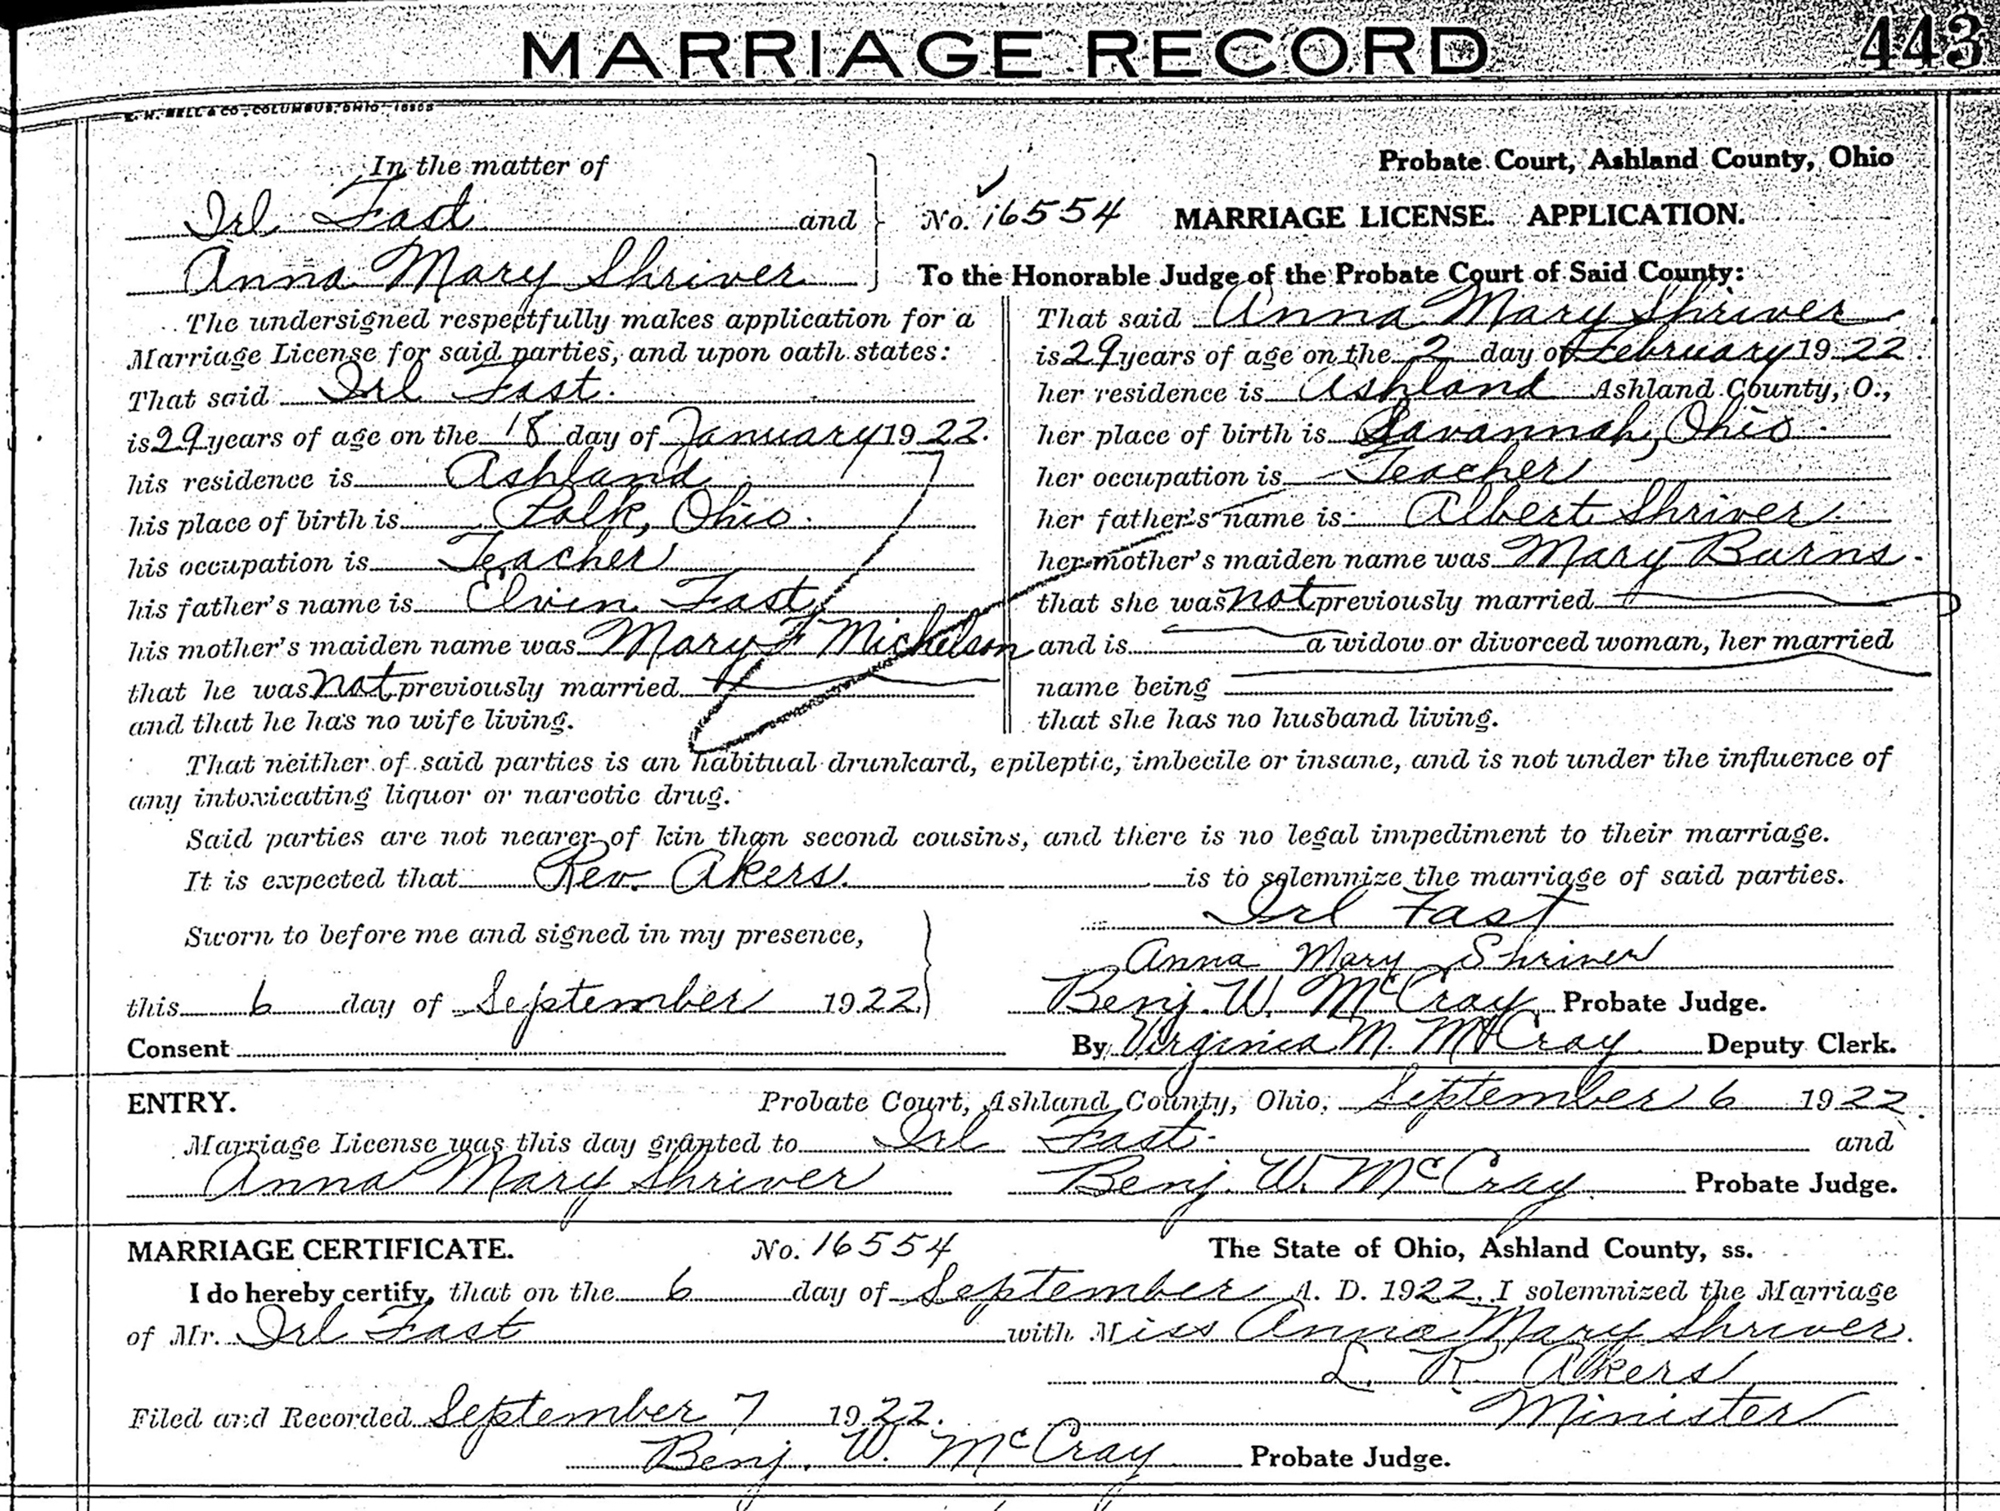 MARRIAGE RECORD 443
In the matter of
Irl Fast and
Anna Mary Shriver
Probate Court, Ashland County, Ohio
No. 16554 MARRIAGE LICENSE. APPLICATION.
To the Honorable Judge of the Probate Court of Said County:
The undersigned respectfully makes application for a
Marriage License for said parties, and upon oath states:
That said Irl Fast.
is 29 years of age on the 18 day of January 1922.
his residence is Ashland
his place of birth is Polk, Ohio.
his occupation is Teacher
his father's name is Elvin Fast
his mother's maiden name was Mary F Mickelson
that he was not previously married
and that he has no wife living.
That said Anna Mary Shriver
is 29 years of age on the 2 day of February 1922.
her residence is Ashland Ashland County, O.,
her place of birth is Savannah, Ohio.
her occupation is Teacher
her father's name is Albert Shriver.
her mother's maiden name was Mary Burns.
that she was not previously married
and is a widow or divorced woman, her married
name being
that she has no husband living.
That neither of said parties is an habitual drunkard, epileptic, imbecile or insane, and is not under the influence of
any intoxicating liquor or narcotic drug.
Said parties are not nearer of kin than second cousins, and there is no legal impediment to their marriage.
It is expected that Rev. Akers. is to solemnize the marriage of said parties.
Irl Fast
Sworn to before me and signed in my presence,
Anna Mary Shriver
this 6 day of September 1922. Benj. W. McCray Probate Judge.
Consent By Virginia M. McCray Deputy Clerk.
ENTRY. Probate Court, Ashland County, Ohio, September 6 1922.
Marriage License was this day granted to Irl Fast. and
Anna Mary Shriver Benj. W. McCray Probate Judge.
MARRIAGE CERTIFICATE. No. 16554 The State of Ohio, Ashland County, ss.
I do hereby certify, that on the 6 day of September A. D. 1922, I solemnized the Marriage
of Mr. Irl Fast with Miss Anna Mary Shriver.
L. R. Akers
Filed and Recorded September 7 1922. Minister
Benj. W. McCray Probate Judge.